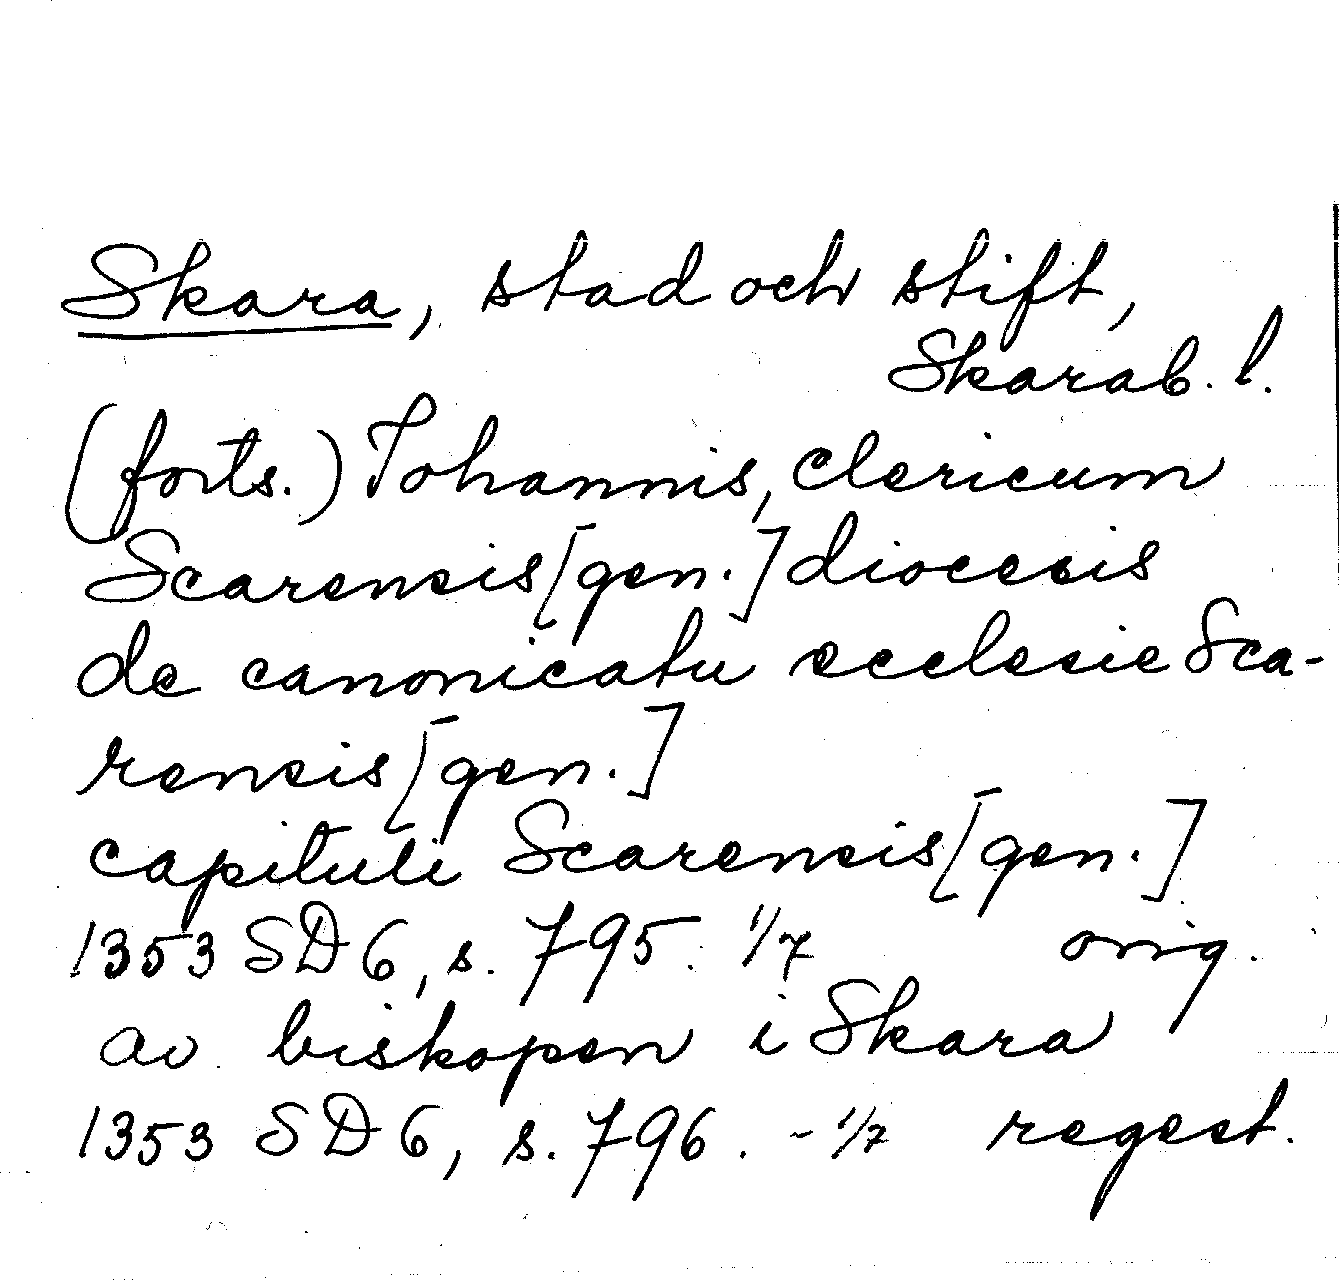 Skara, stad och stift,
Skarab. l.
(forts.) Johannis, clericum
Scarensis [gen.] diocesis
de canonicatu ecclesie Sca-
rensis [gen.]
capituli Scarensis [gen.]
1353 SD 6, s. 795. 1/7 orig.
av biskopen i Skara
1353 SD 6, s. 796. - 1/7 regest.